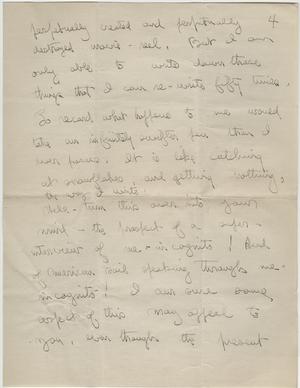 4
perpetually created and perpetually
destroyed movie-reel. But I am
only able to write down these
things that I can re-write fifty times.
To record what happens to me would
take an infinitely subtler pen than I
ever possess. It is like catching
at snowflakes, and getting nothing,
the way I write.
turn this over into your
mind - the prospect of a super-
interview of me - incognito! And
of American soil speaking through me -
incognito! I am sure some
aspect of this may appeal to
you, even though the present